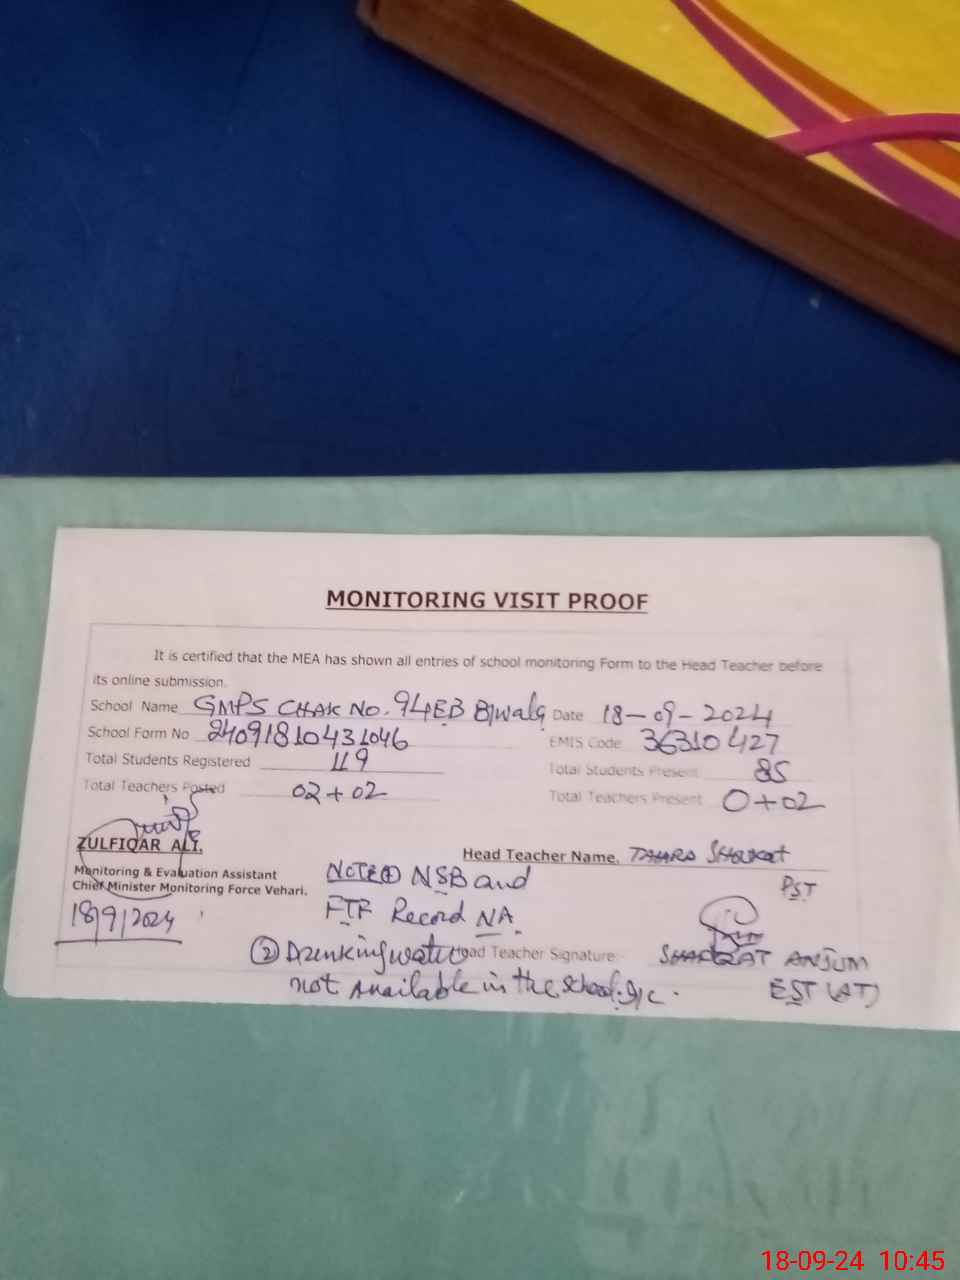 MONITORING VISIT PROOF
It is certified that the MEA has shown all entries of school monitoring Form to the Head Teacher before
its online submission.
School Name GMPS CHAK NO. 94EB Date 18-09-2024
School Form No 24091810431046 EMIS Code 36310427
Total Students Registered 119 Total Students Present 85
Total Teachers Posted 02+02 Total Teachers Present 0+02
ZULFIQAR ALI.
Monitoring & Evaluation Assistant
Chief Minister Monitoring Force Vehari.
18/9/2024
Head Teacher Name.
PST
NOTE ① NSB and
FTF Record NA.
② Drinking water
not available in the school
Head Teacher Signature:
ANJUM
EST (AT)
18-09-24 10:45